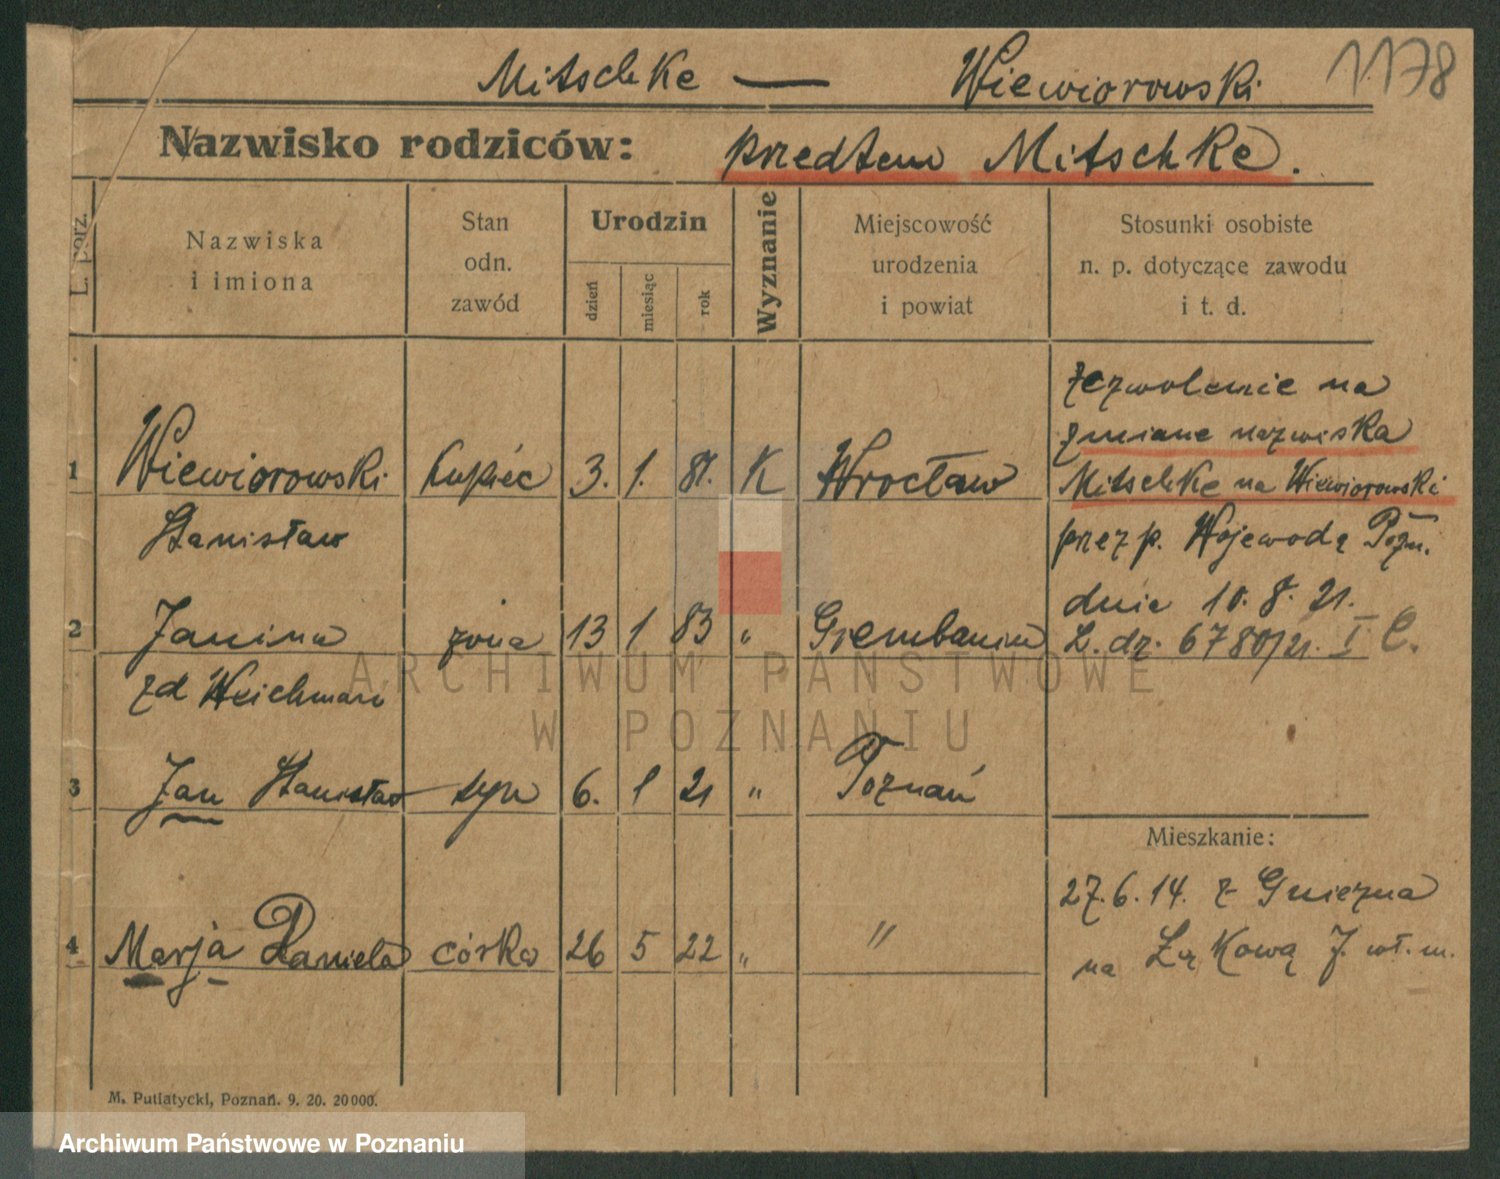 Mitschke — Wiewiorowski 1178
Nazwisko rodziców: przedtem Mitschke.
L. porz.
Nazwiska
i imiona
Stan
odn.
zawód
Urodzin
dzień
miesiąc
rok
Wyznanie
Miejscowość
urodzenia
i powiat
Stosunki osobiste
n. p. dotyczące zawodu
i t. d.
1 Wiewiorowski kupiec 3. 1. 81. K Wrocław
Stanisław
zezwolenie na
zmianę nazwiska
Mitschke na Wiewiorowski
przez p. Wojewodą Pozn.
dnia 10. 8. 21.
L. dz. 6780/21. I C.
2 Janina żona 13 1 83 " Grembanin
zd Weichman
3 Jan Stanisław syn 6. 1 21 " Poznań
Mieszkanie:
27. 6. 14. z Gniezna
na Łąkową 7. wł. m.
4 Marja Daniela córka 26 5 22 " "
M. Putiatycki, Poznań. 9. 20. 20000.
ARCHIWUM PAŃSTWOWE
W POZNANIU
Archiwum Państwowe w Poznaniu